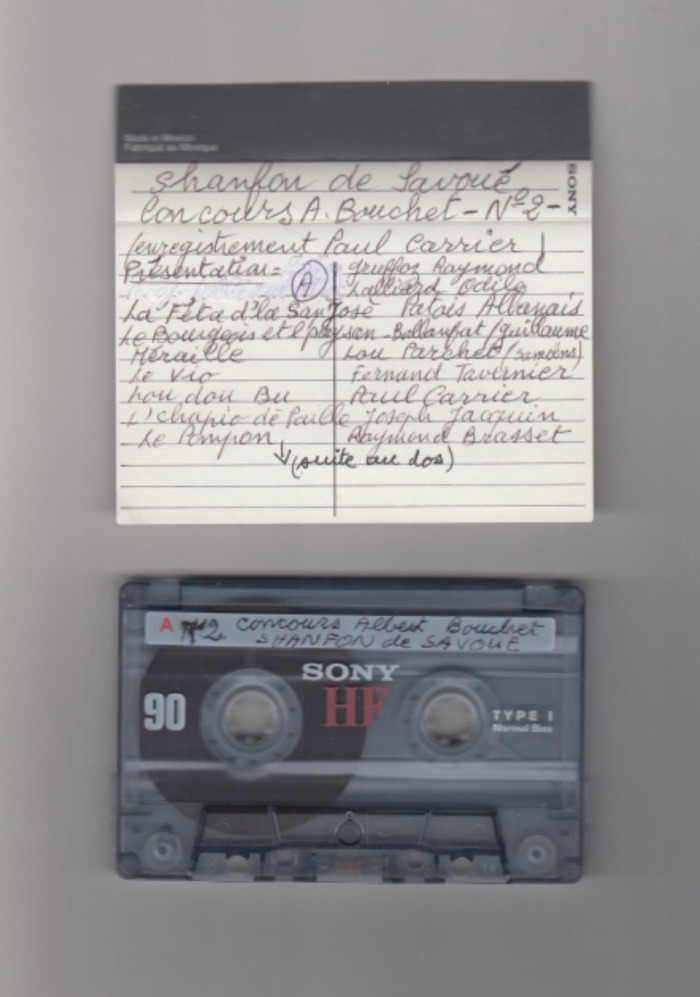 Made in Mexico
Fabriqué au Mexique
SONY
Shanfon de Savoué
Concours A. Bouchet - Nº 2 -
(enregistrement Paul Carrier)
Présentation = Gruffaz Raymond
A Lalliard Odile
La Féta d'la San Josè Patois Albanais
Le Bourgeois et l'paysan - Ballanfat/Guillaume
Méraille Lou Parchet (Samoëns)
Le Vio Fernand Tavernier
Lou dou Bu Paul Carrier
L'chapio dè Paille Joseph Jacquin
Le Pompon Raymond Brasset
↓ (suite au dos)
A Nº2 Concours Albert Bouchet
SHANFON de SAVOUÉ
SONY
HF
90
TYPE I
Normal Bias